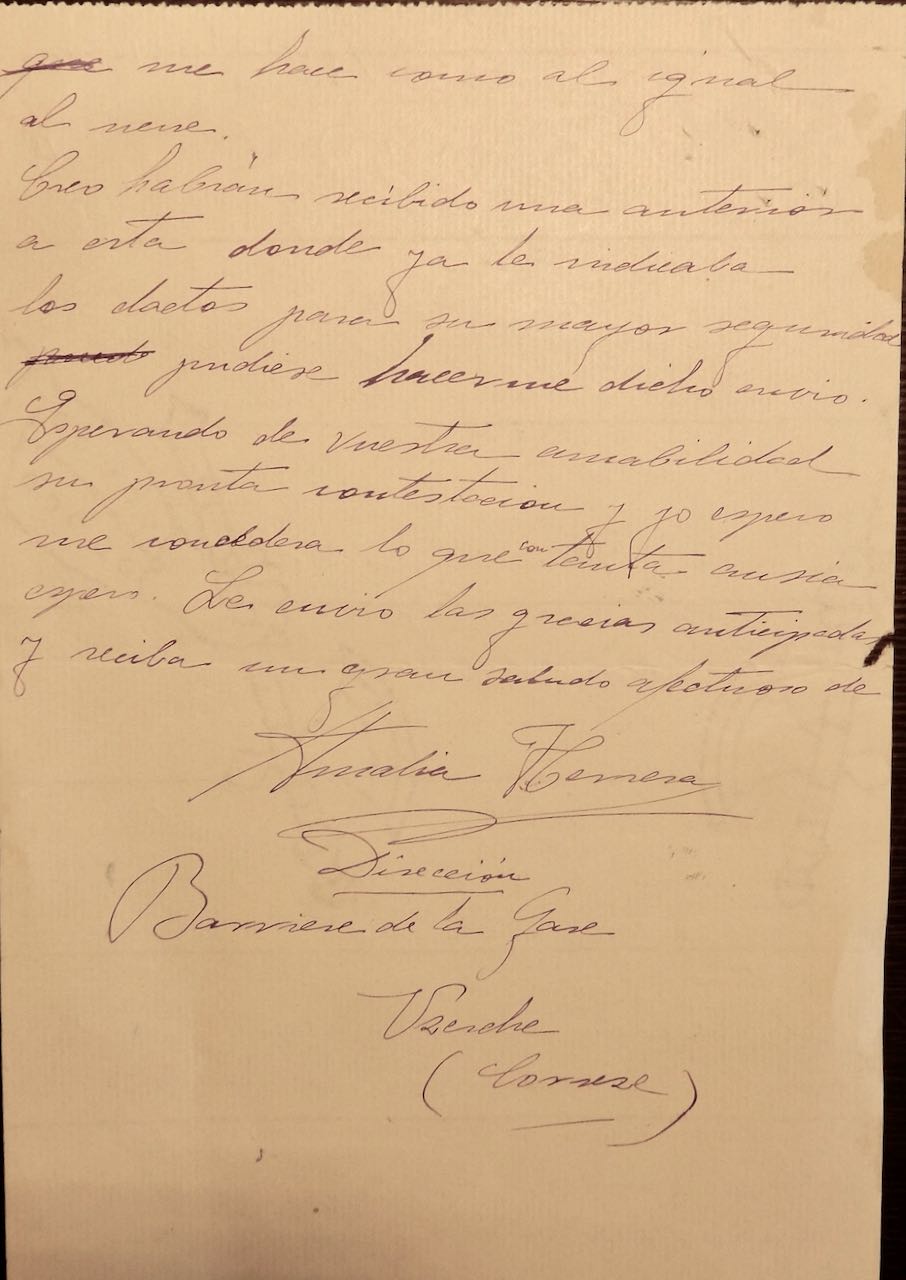 me hace como al igual
al nene.
Creo habrán recibido una anterior
a esta donde ya le indicaba
los dactos para su mayor seguridad
pudiese hacerme dicho envio.
Esperando de vuestra amabilidad
su pronta contestacion y yo espero
me concedera lo que con tanta ansia
espero. Le envio las gracias anticipadas
y reciba un gran saludo afectuoso de
Amalia Herrera
Dirección
Barriere de la Gare
Uzerche
(Correze)